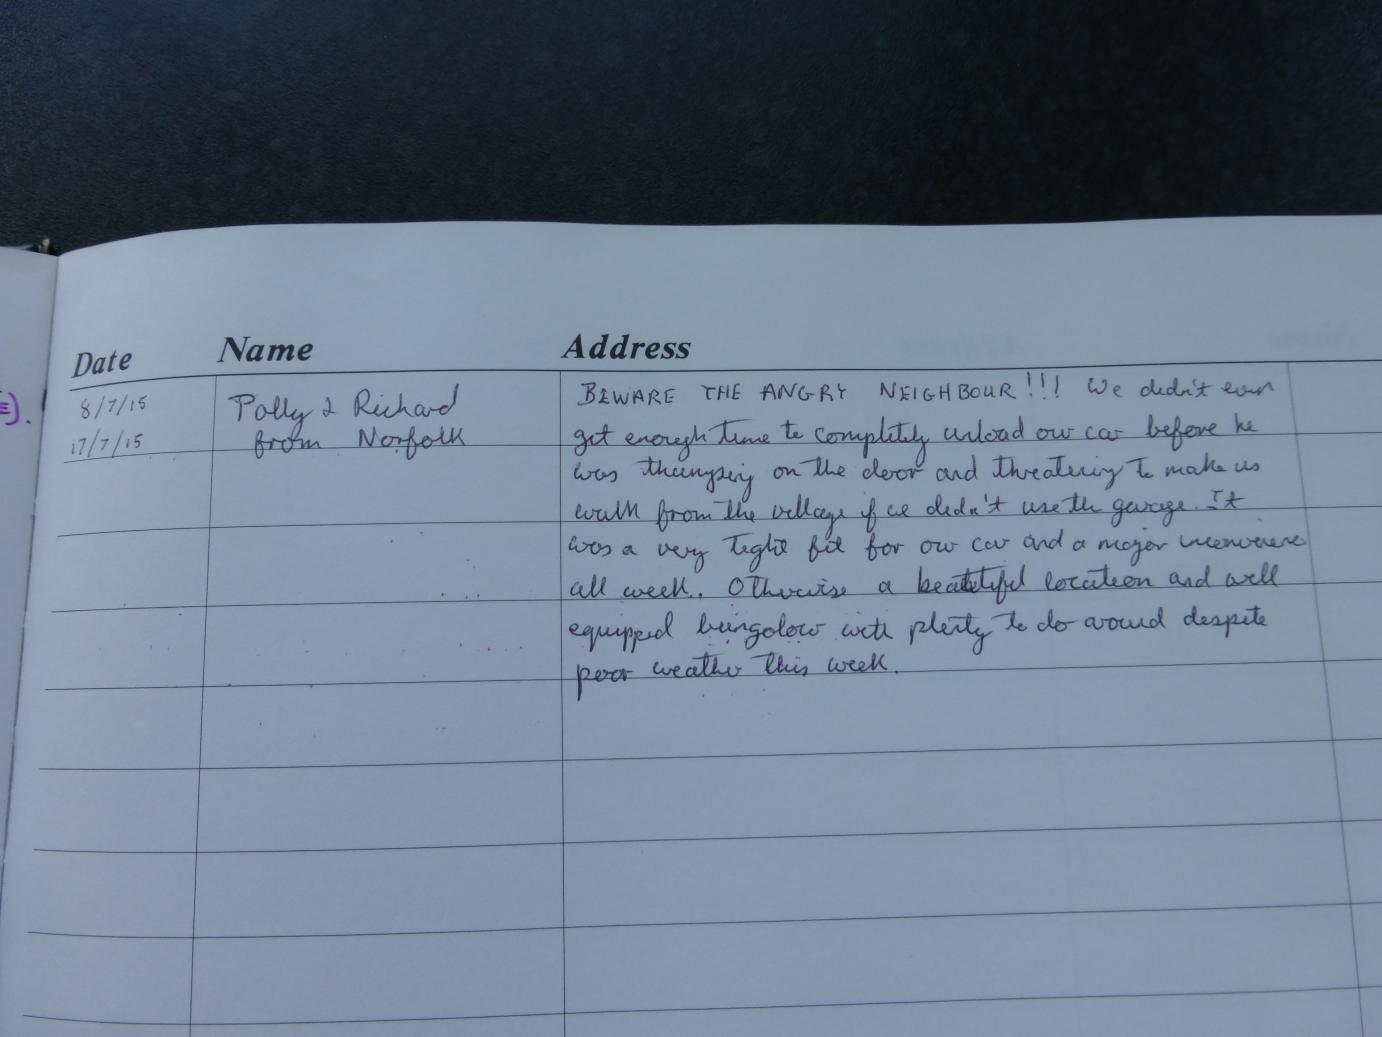 Date Name Address
8/7/15 Polly & Richard BEWARE THE ANGRY NEIGHBOUR!!! We didn't even
17/7/15 from Norfolk get enough time to completely unload our car before he
was thumping on the door and threatening to make us
walk from the village if we didn't use the garage. It
was a very tight fit for our car and a major inconvenience
all week. Otherwise a beautiful location and well
equipped bungalow with plenty to do around despite
poor weather this week.
E).